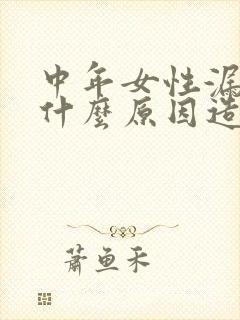 中年女性漏
什麼原因造
蕭魚禾